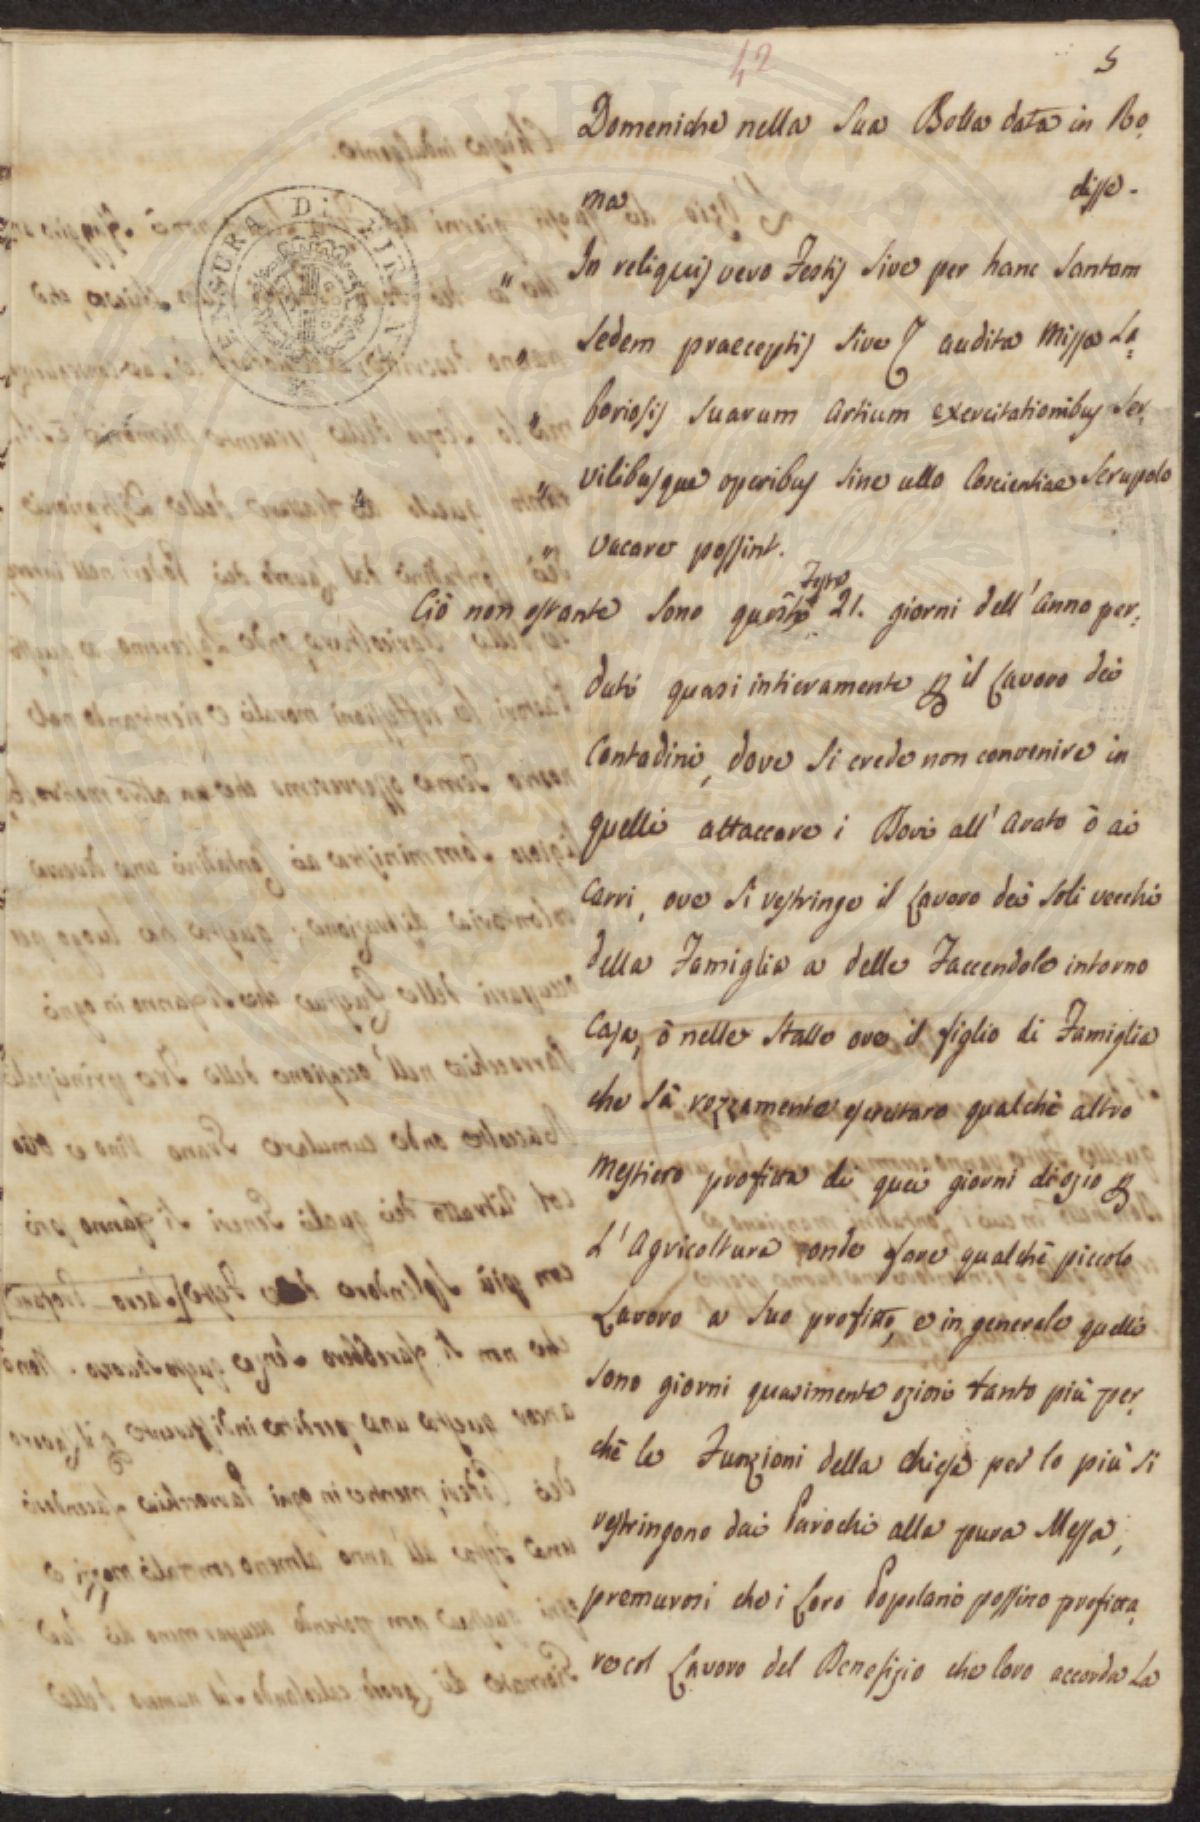 42
5
Domeniche nella Sua Bolla data in Ro,
ma disse-
In reliquis vero Festis sive per hanc Santam
Sedem praeceptis sive audita Missa La=
boriosis Suarum Artium exercitationibus Ser,
vilibusque operibus Sine ullo Coscientiae Scrupolo
vacare possint.
Feste
Ciò non ostante Sono queste 21. giorni dell' Anno per,
duti quasi intieramente il Lavoro dei
Contadini, dove Si crede non convenire in
quelli attaccare i Bovi all' Arato ò ai
Carri, ove Si restringe il Lavoro dei soli vecchi
della Famiglia a delle Faccendole intorno
Casa, ò nelle Stalle ove il figlio di Famiglia
che Sà rozzamente esercitare qualchè altro
Mestiere profitta di quei giorni di ozio
L' Agricoltura onde fare qualchè piccolo
Lavoro a Suo profitto, e in generale quelli
Sono giorni quasimente oziosi tanto più per,
chè le Funzioni della chiesa per lo più Si
restringono dai Parochi alla pura Messa,
premurosi che i Loro Popolani possino profitta,
re col Lavoro del Benefizio che loro accorda La